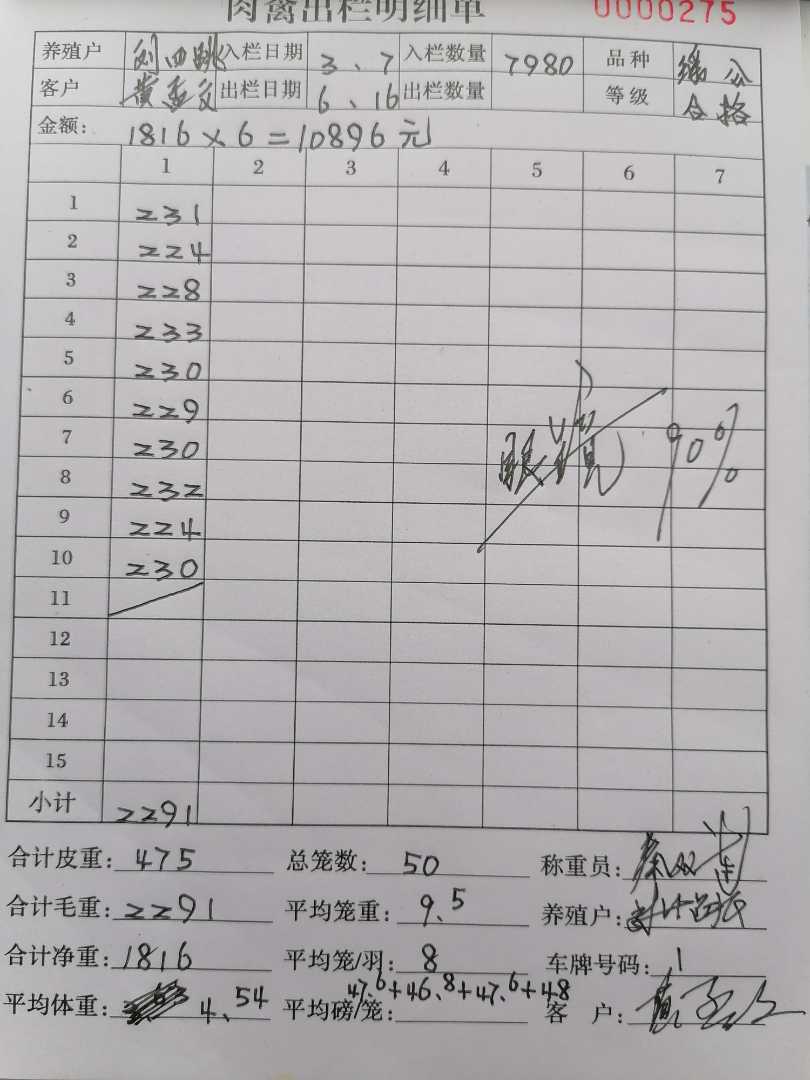 肉禽出栏明细单 0000275
养殖户 刘四跳 入栏日期 3、7 入栏数量 7980 品种
客户 黄孟文 出栏日期 6、16 出栏数量 等级 合格
金额: 1816×6=10896元
1 2 3 4 5 6 7
1 231
2 224
3 228
4 233
5 230
6 229
7 230
8 232
9 224
10 230
11
12
13
14
15
90%
小计 2291
合计皮重: 475 总笼数: 50 称重员:
合计毛重: 2291 平均笼重: 9.5 养殖户:
合计净重: 1816 平均笼/羽: 8 车牌号码: 1
平均体重: 4、54 平均磅/笼: 47.6+46.8+47.6+48 客 户: